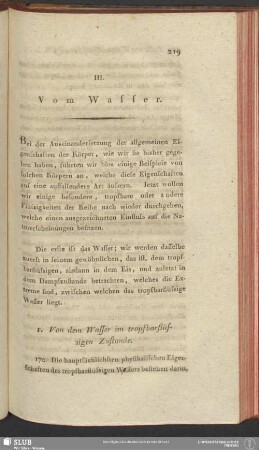 219
III.
Vom Wasser.
Bei der Auseinandersetzung der allgemeinen Ei-
genschaften der Körper, wie wir sie bisher gege-
ben haben, führten wir blos einige Beispiele von
solchen Körpern an, welche diese Eigenschaften
auf eine auffallendere Art äusern. Jetzt wollen
wir einige besondere, tropfbare oder andere
Flüssigkeiten der Reihe nach wieder durchgehen,
welche einen ausgezeichneten Einfluss auf die Na-
turerscheinungen besitzen.
Die erste ist das Wasser; wir werden dasselbe
zuerst in seinem gewöhnlichen, das ist, dem tropf-
barflüssigen, alsdann in dem Eis, und zuletzt in
dem Dampfzustande betrachten, welches die Ex-
treme sind, zwischen welchen das tropfbarflüssige
Wasser liegt.
1. Von dem Wasser im tropfbarflüs-
sigen Zustande.
170. Die hauptsächlichsten physikalischen Eigen-
schaften des tropfbarflüssigen Wassers bestehen darin,
SLUB
Wir führen Wissen.